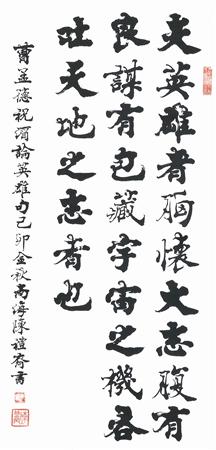 夫英雄者胸懷大志腹有
良謀有包藏宇宙之機吞
吐天地之志者也
曹孟德祝酒論英雄句己卯金秋南海陳書